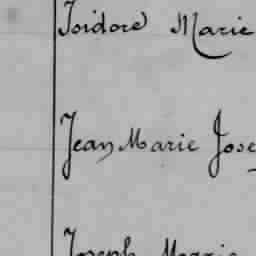 Isidore Marie
Jean Marie Jose
Joseph Marie